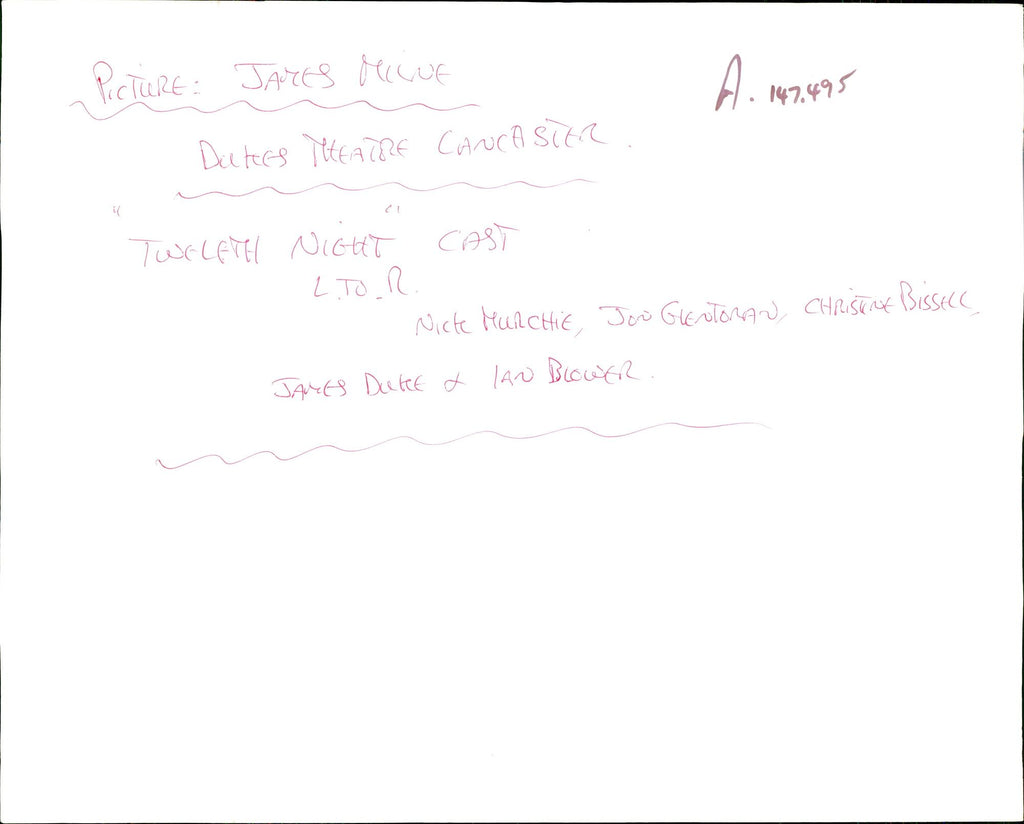 PICTURE: JAMES MILNE
A. 147.495
DUKES THEATRE LANCASTER.
"TWELFTH NIGHT" CAST
L.TO.R.
NICK MURCHIE, JON GLENTORAN, CHRISTINE BISSELL,
JAMES DUKE & IAN BLOWER.